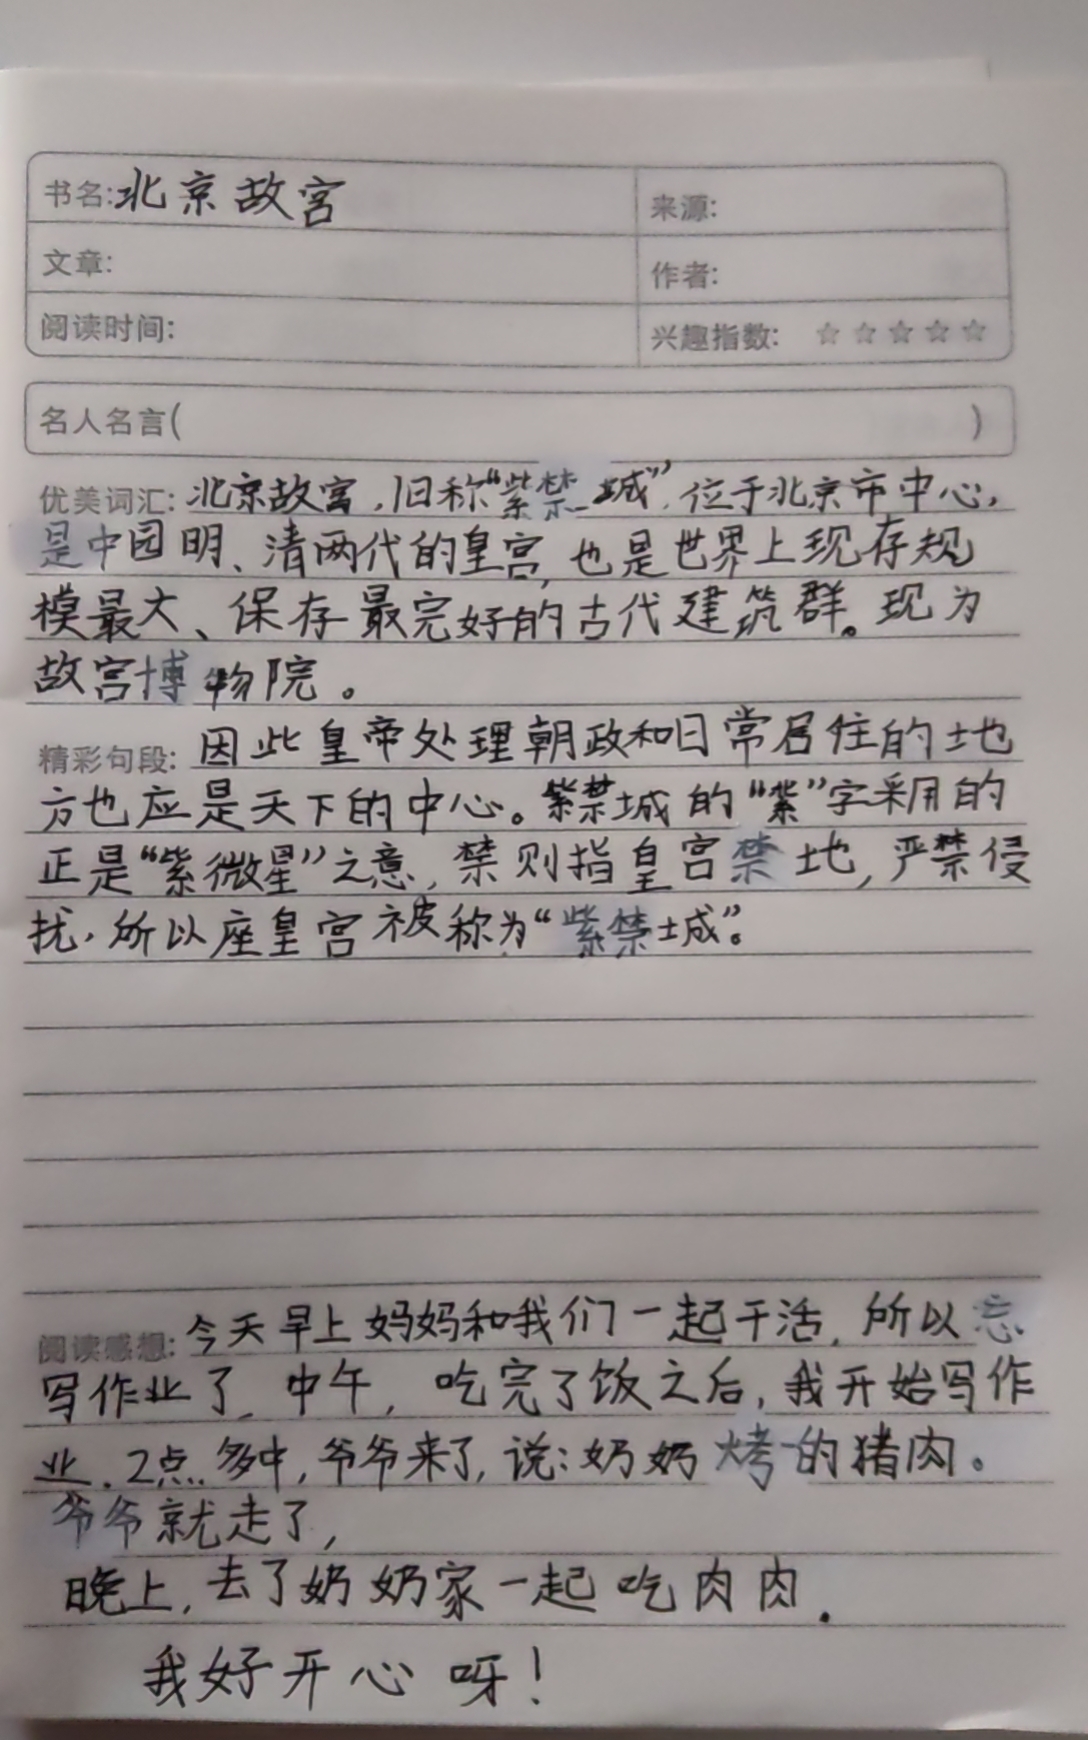 书名:北京故宫 来源:
文章: 作者:
阅读时间: 兴趣指数: ☆☆☆☆☆
名人名言( )
优美词汇:北京故宫,旧称“紫禁城”,位于北京市中心,
是中国明、清两代的皇宫,也是世界上现存规
模最大、保存最完好的古代建筑群。现为
故宫博物院。
精彩句段:因此皇帝处理朝政和日常居住的地
方也应是天下的中心。紫禁城的“紫”字采用的
正是“紫微星”之意,禁则指皇宫禁地,严禁侵
扰,所以座皇宫被称为“紫禁城”。
阅读感想:今天早上妈妈和我们一起干活,所以忘
写作业了,中午,吃完了饭之后,我开始写作
业.2点多中,爷爷来了,说:奶奶烤的猪肉。
爷爷就走了,
晚上,去了奶奶家一起吃肉肉.
我好开心呀!